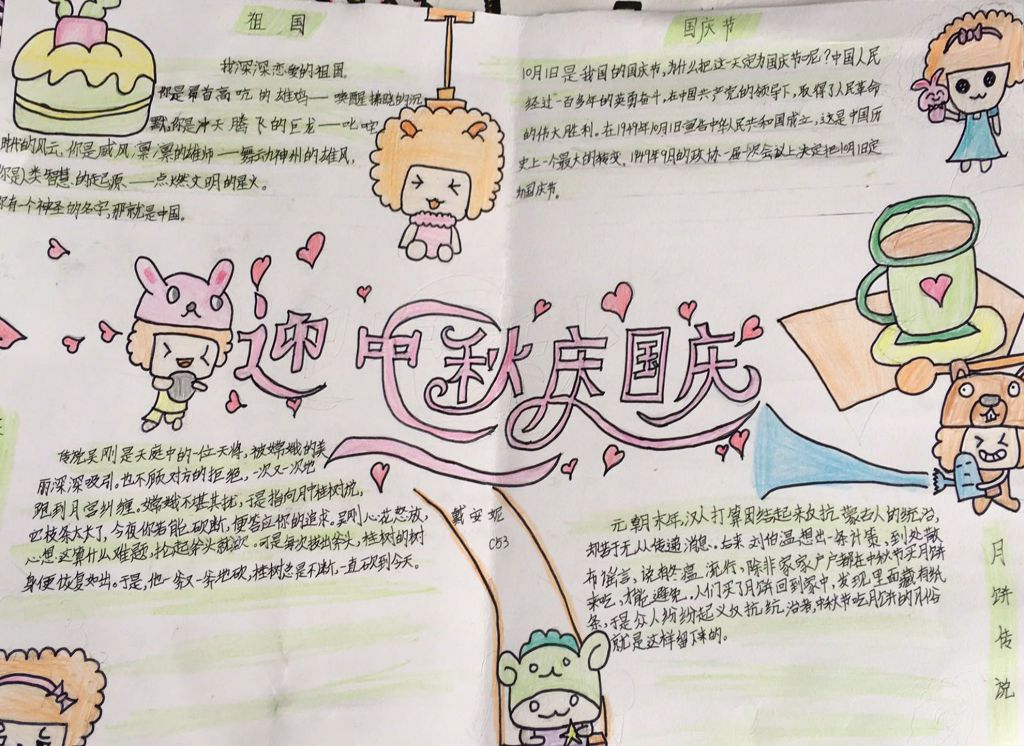 祖国
我深深恋爱的祖国。
你是昂首高吭的雄鸡——唤醒拂晓的沉
默，你是冲天腾飞的巨龙——叱咤
时代的风云，你是威风凛凛的雄师——舞动神州的雄风，
你是人类智慧的起源——点燃文明的星火。
你有一个神圣的名字，那就是中国。
国庆节
10月1日是我国的国庆节，为什么把这一天定为国庆节呢？中国人民
经过一百多年的英勇奋斗，在中国共产党的领导下，取得了人民革命
的伟大胜利。在1949年10月1日宣告中华人民共和国成立，这是中国历
史上一个最大的转变。1949年9月的政协一届一次会议上决定把10月1日定
为国庆节。
迎中秋庆国庆
传说吴刚是天庭中的一位天将，被嫦娥的美
丽深深吸引。也不顾对方的拒绝，一次又一次地
跑到月宫纠缠。嫦娥不堪其扰，于是指向月中桂树说，
吃枝条太大了，今夜你若能砍断，便答应你的追求。吴刚心花怒放，
心想这算什么难题，抡起斧头就砍。可是每次拔出斧头，桂树的树
身便恢复如出。于是，他一斧又一斧地砍，桂树总是不断，一直砍到今天。
戴安妮
C53
元朝末年，汉人打算团结起来反抗蒙古人的统治，
却苦于无从传递消息。后来刘伯温想出一条计策，到处散
布谣言，说有冬瘟流行，除非家家户户都在中秋节买月饼
来吃，才能避免。人们买了月饼回到家中，发现里面藏有纸
条，于是众人纷纷起义反抗统治者，中秋节吃月饼的习俗
就是这样留下来的。
月饼传说